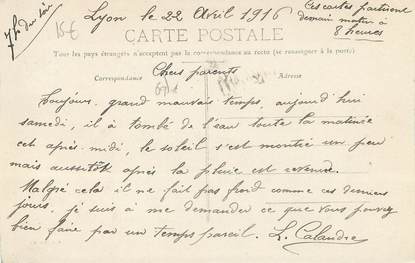 7h du soir
15€
Lyon le 22 Avril 1916
Ces cartes partiront
demain matin à
8 heures
CARTE POSTALE
Tous les pays étrangers n'acceptent pas la correspondance au recto (se renseigner à la poste)
Correspondance
Adresse
Chers parents
Toujours grand mauvais temps, aujourd'hui
samedi, il à tombé de l'eau toute la matinée
cet après-midi, le soleil s'est montré un peu
mais aussitôt après la pluie est revenue.
Malgré cela il ne fait pas froid comme ces derniers
jours. je suis à me demander ce que vous pouvez
bien faire par un temps pareil. L. Calandre